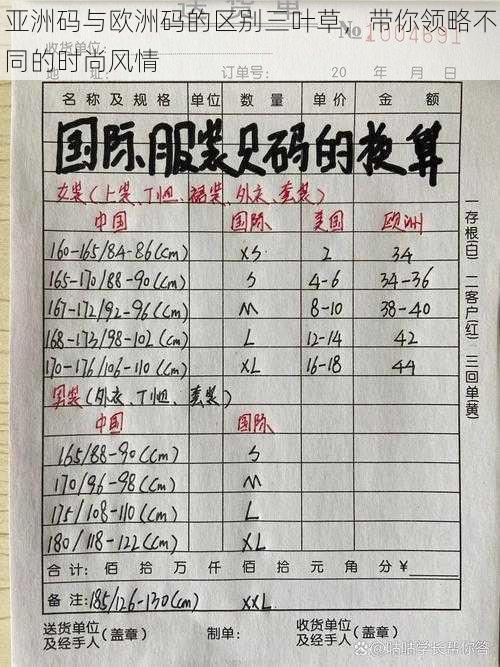 亚洲码与欧洲码的区别三叶草，带你领略不
同的时尚风情
送货单
1004691
订单号： 20 年 月 日
名称及规格 单位 数量 单价 金额
国际服装尺码的换算
女装(上装、T恤、裙装、外衣、套装)
中国 国际 美国 欧洲
160-165/84-86(cm) XS 2 34
165-170/88-90(cm) S 4-6 34-36
167-172/92-96(cm) M 8-10 38-40
168-173/98-102(cm) L 12-14 42
170-176/106-110(cm) XL 16-18 44
男装(外衣、T恤、套装)
中国 国际
165/88-90(cm) S
170/96-98(cm) M
175/108-110(cm) L
180/118-122(cm) XL
合计： 佰 拾 万 仟 佰 拾 元 角 分 ¥
备注：185/126-130(cm) XXL
送货单位及经手人(盖章) 制单： 收货单位及经手人(盖章)
一存根(白) 二客户红) 三回单(黄)
@咕咕学长帮你答